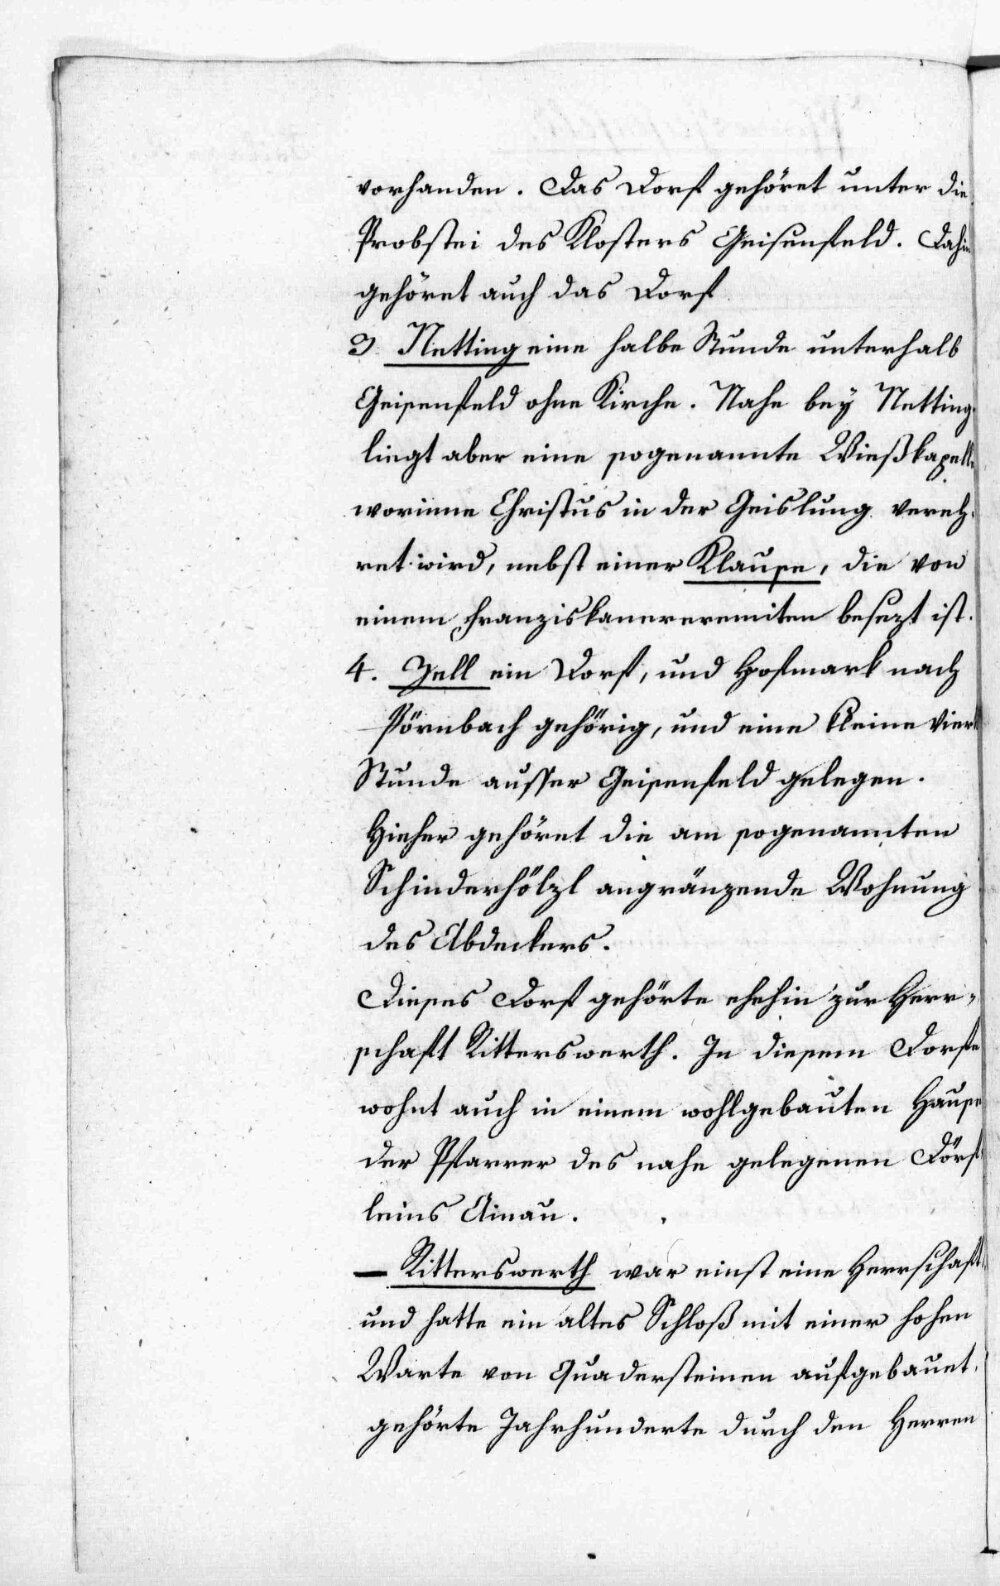 vorhanden. Das Dorf gehöret unter die
Probstei des Klosters Geisenfeld. Dahin
gehöret auch das Dorf
3 Netting eine halbe Stunde unterhalb
Geisenfeld ohne Kirche. Nahe bey Netting
liegt aber eine sogenannte Wießkapelle
worinne Christus in der Geislung vereh-
ret wird, nebst einer Klause, die von
einem Franziskanereremiten besezt ist.
4. Zell ein Dorf, und Hofmark nach
Pörnbach gehörig, und eine kleine Viertl
Stunde ausser Geisenfeld gelegen.
Hieher gehöret die am sogenannten
Schinderhölzl angränzende Wohnung
des Abdeckers.
Dieses Dorf gehörte ehehin zur Herr-
schaft Ritterswerth. In diesem Dorfe
wohnt auch in einem wohlgebauten Hause
der Pfarrer des nahe gelegenen Dörf
leins Ainau.
— Ritterswerth war einst eine Herrschaft
und hatte ein altes Schloß mit einer hohen
Warte von Quadersteinen aufgebauet.
gehörte Jahrhunderte durch den Herren